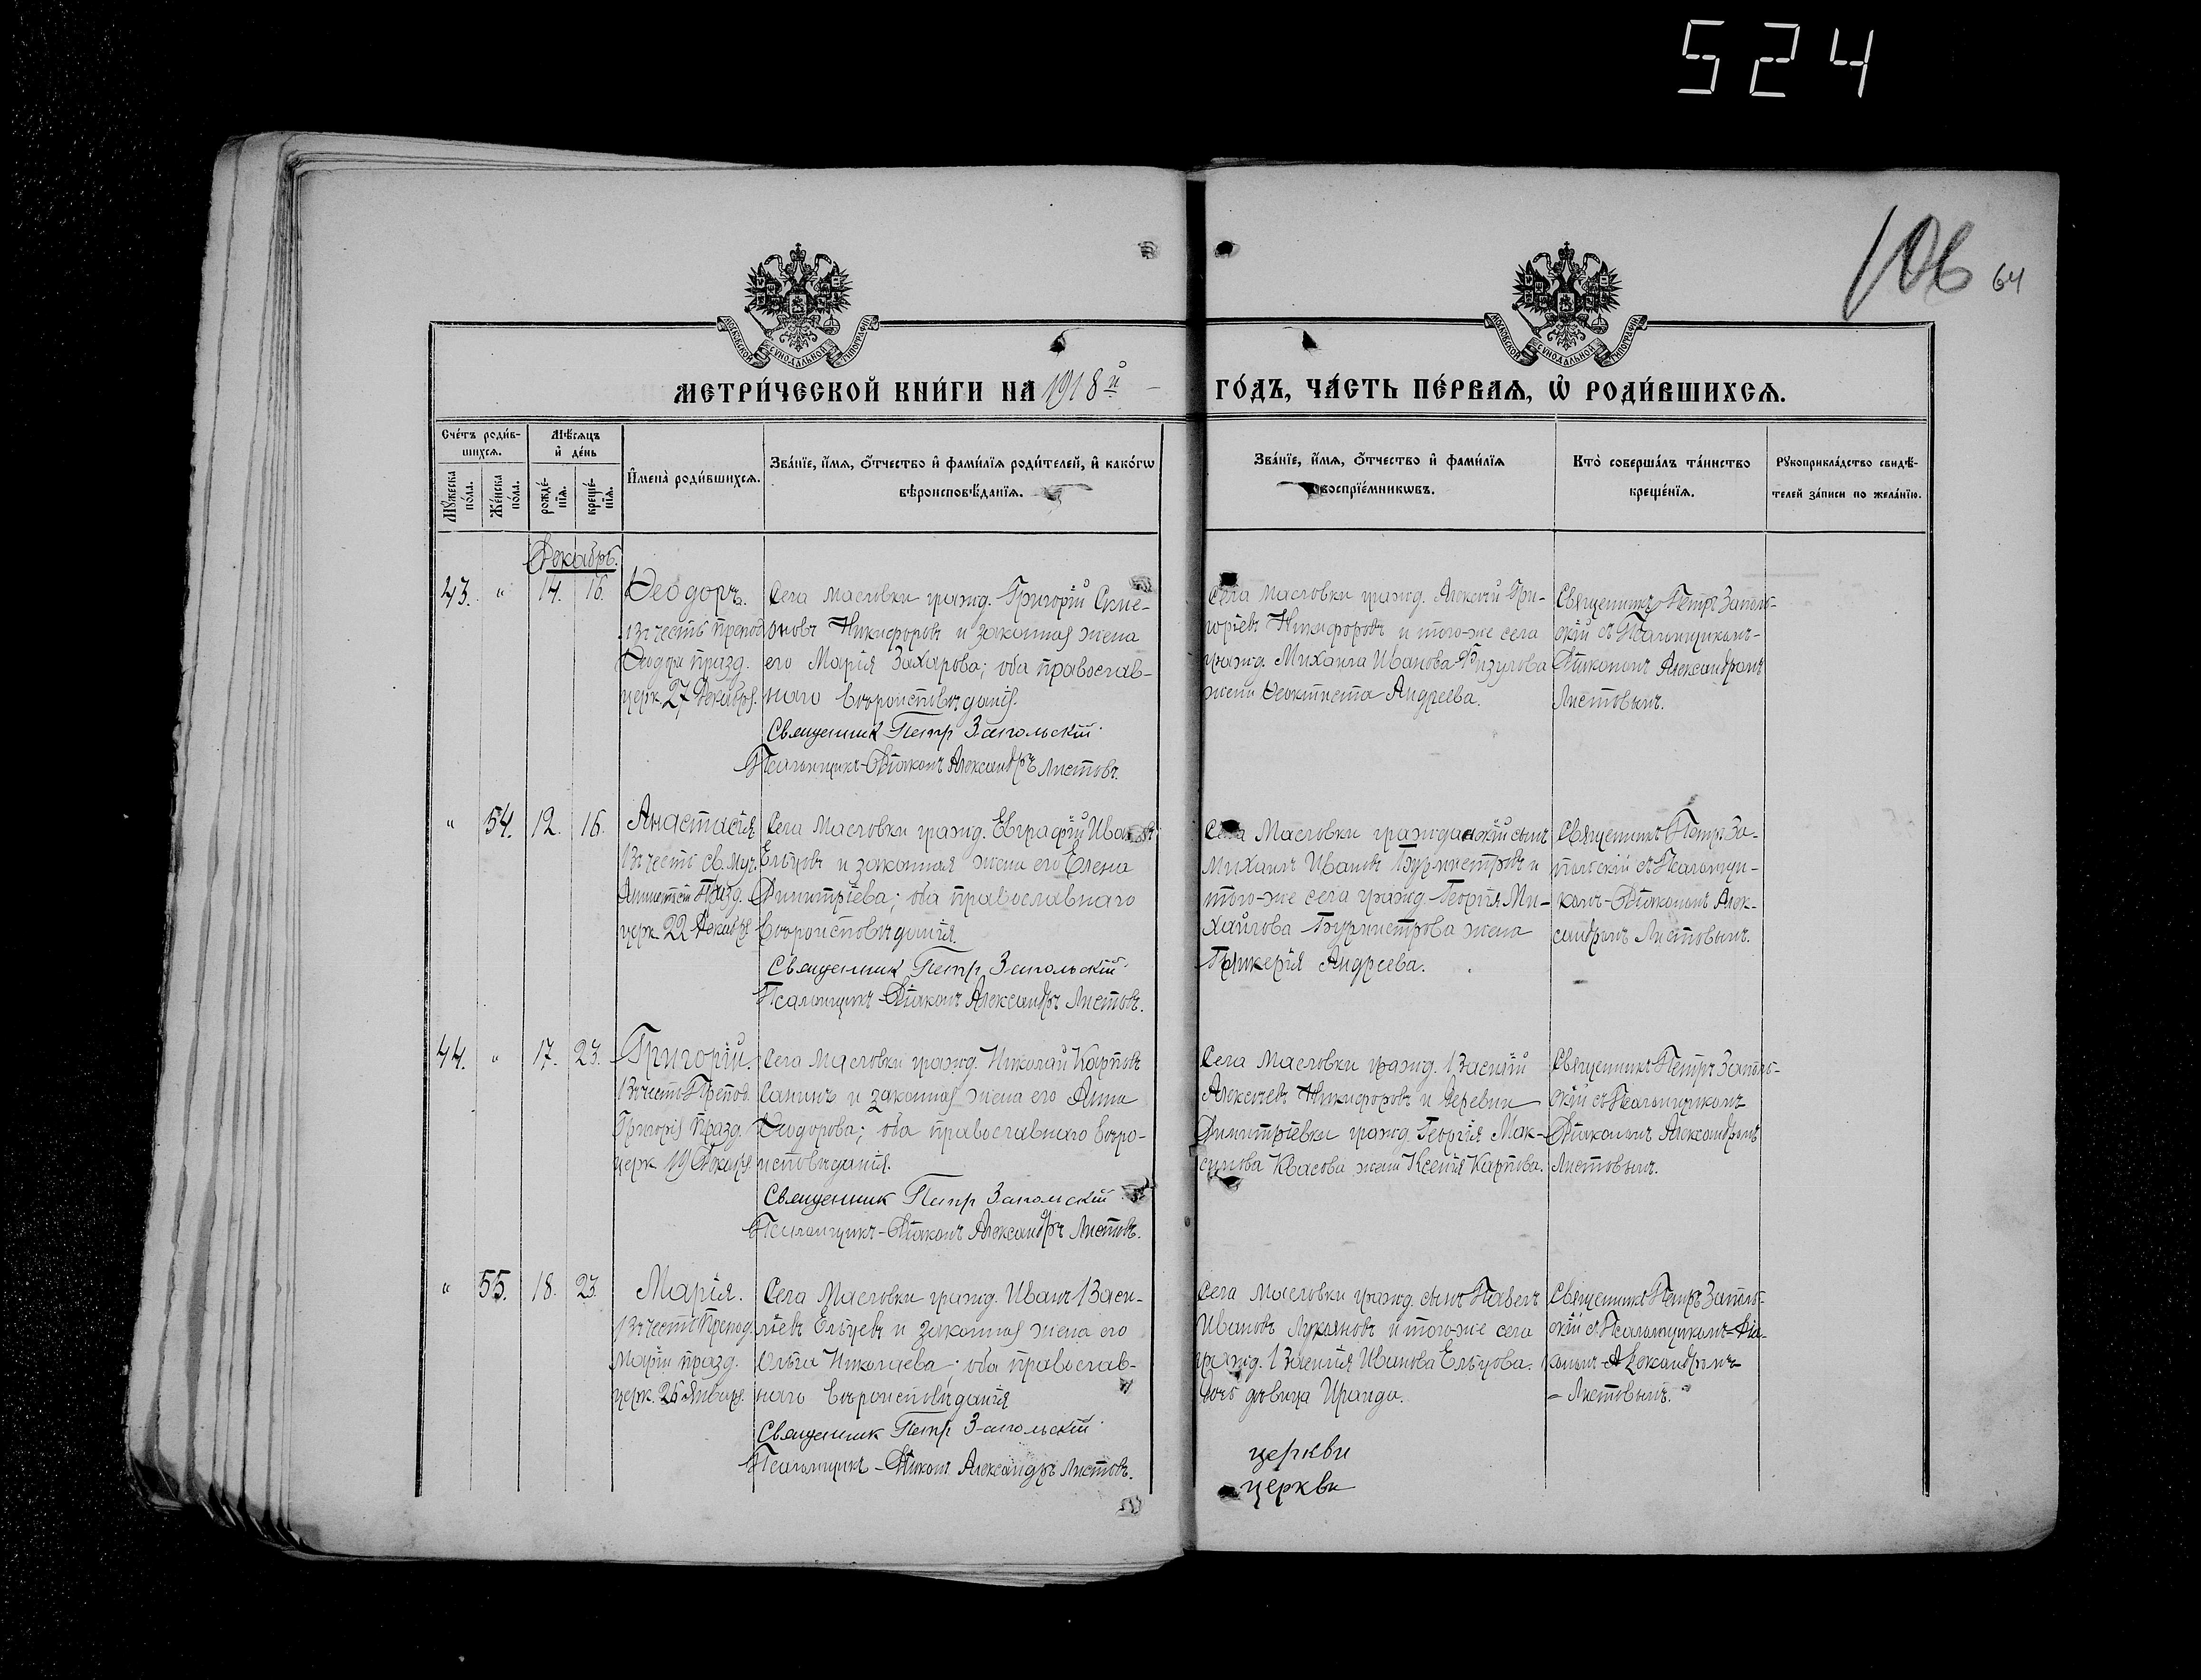 524
106 64
МОСКОВСКОЙ СѴНОДАЛЬНОЙ ТИПОГРАФІИ
МОСКОВСКОЙ СѴНОДАЛЬНОЙ ТИПОГРАФІИ
МЕТРИ́ЧЕСКОЙ КНИ́ГИ НА 1918й
ГО́ДЪ, ЧА́СТЬ ПЕ́РВАѦ, Ѡ҆ РОДИ́ВШИХСѦ.
Сче́тъ роди́в-
шихсѧ.
Мꙋ́жеска по́ла.
Же́нска по́ла.
Мѣ́сѧцъ
и҆ де́нь
рожде́-
нїѧ.
креще́-
нїѧ.
И҆мена̀ роди́вшихсѧ.
Зва́нїе, и҆́мѧ, ѻ҆́тчество и҆ фами́лїѧ роди́телей, и҆ како́гѡ
вѣроисповѣ́данїѧ.
Зва́нїе, и҆́мѧ, ѻ҆́тчество и҆ фами́лїѧ
воспрїе́мникѡвъ.
Кто̀ соверша́лъ та́инство
креще́нїѧ.
Рꙋкоприкла́дство свидѣ́-
телей за́писи по жела́нїю.
Декабрь.
43. " 14. 16.
Ѳеодоръ.
Въ честь препод.
Ѳеодора празд.
церк. 27 Декабря.
Села Масловки гражд. Григорій Симе-
оновъ Никифоровъ и законная жена
его Марія Захарова; оба православ-
наго вѣроисповѣданія.
Священник Петр Запольскій
Псаломщикъ-Діаконъ Александръ Листовъ.
Села Масловки гражд. Алексѣй Гри-
горіевъ Никифоровъ и того-же села
гражд. Михаила Иванова Визулова
жена Ѳеоктиста Андреева.
Священникъ Петръ Заполь-
скій съ Псаломщикомъ-
Діакономъ Александромъ
Листовымъ.
" 54. 12. 16.
Анастасія
Въ честь св. муч.
Анастасіи Празд.
церк. 22 Декабря
Села Масловки гражд. Евграфій Ивановъ
Ельцовъ и законная жена его Елена
Димитріева; оба православнаго
вѣроисповѣданія.
Священник Петр Запольскій
Псаломщикъ-Діаконъ Александръ Листовъ.
Села Масловки гражданскій сынъ
Михаилъ Ивановъ Бурмистровъ и
того-же села гражд. Георгія Ми-
хайлова Бурмистрова жена
Гликерія Андреева.
Священникъ Петръ За-
польскій съ Псаломщи-
комъ-Діакономъ Алек-
сандромъ Листовымъ.
44. " 17. 23.
Григорій.
Въ честь Препод.
Григорія Празд.
церк. 19 Декабря.
Села Масловки гражд. Николай Карповъ
Санинъ и законная жена его Анна
Ѳеодорова; оба православнаго вѣро-
исповѣданія.
Священник Петр Запольскій
Псаломщикъ-Діаконъ Александръ Листовъ.
Села Масловки гражд. Василій
Алексѣевъ Никифоровъ и деревни
Димитріевки гражд. Георгія Мак-
симова Квасова жена Ксенія Карпова.
Священникъ Петръ Заполь-
скій съ Псаломщикомъ
Діакономъ Александромъ
Листовымъ.
" 55. 18. 23.
Марія.
Въ честь Препод.
Маріи празд.
церк. 26 Января.
Села Масловки гражд. Иванъ Васи-
ліевъ Ельцевъ и законная жена его
Ольга Николаева; оба православ-
наго вѣроисповѣданія
Священник Петр Запольскій
Псаломщикъ-Діаконъ Александръ Листовъ.
Села Масловки гражд. сынъ Павелъ
Ивановъ Лукьяновъ и того-же села
гражд. Василія Иванова Ельцова.
дочь дѣвица Ираида.
Священникъ Петръ Заполь-
скій съ Псаломщикомъ-Діа-
кономъ Александромъ
- Листовымъ.
церкви
церкви